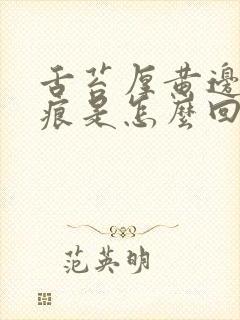 舌苔厚黄邊
痕是怎麼回
范英明